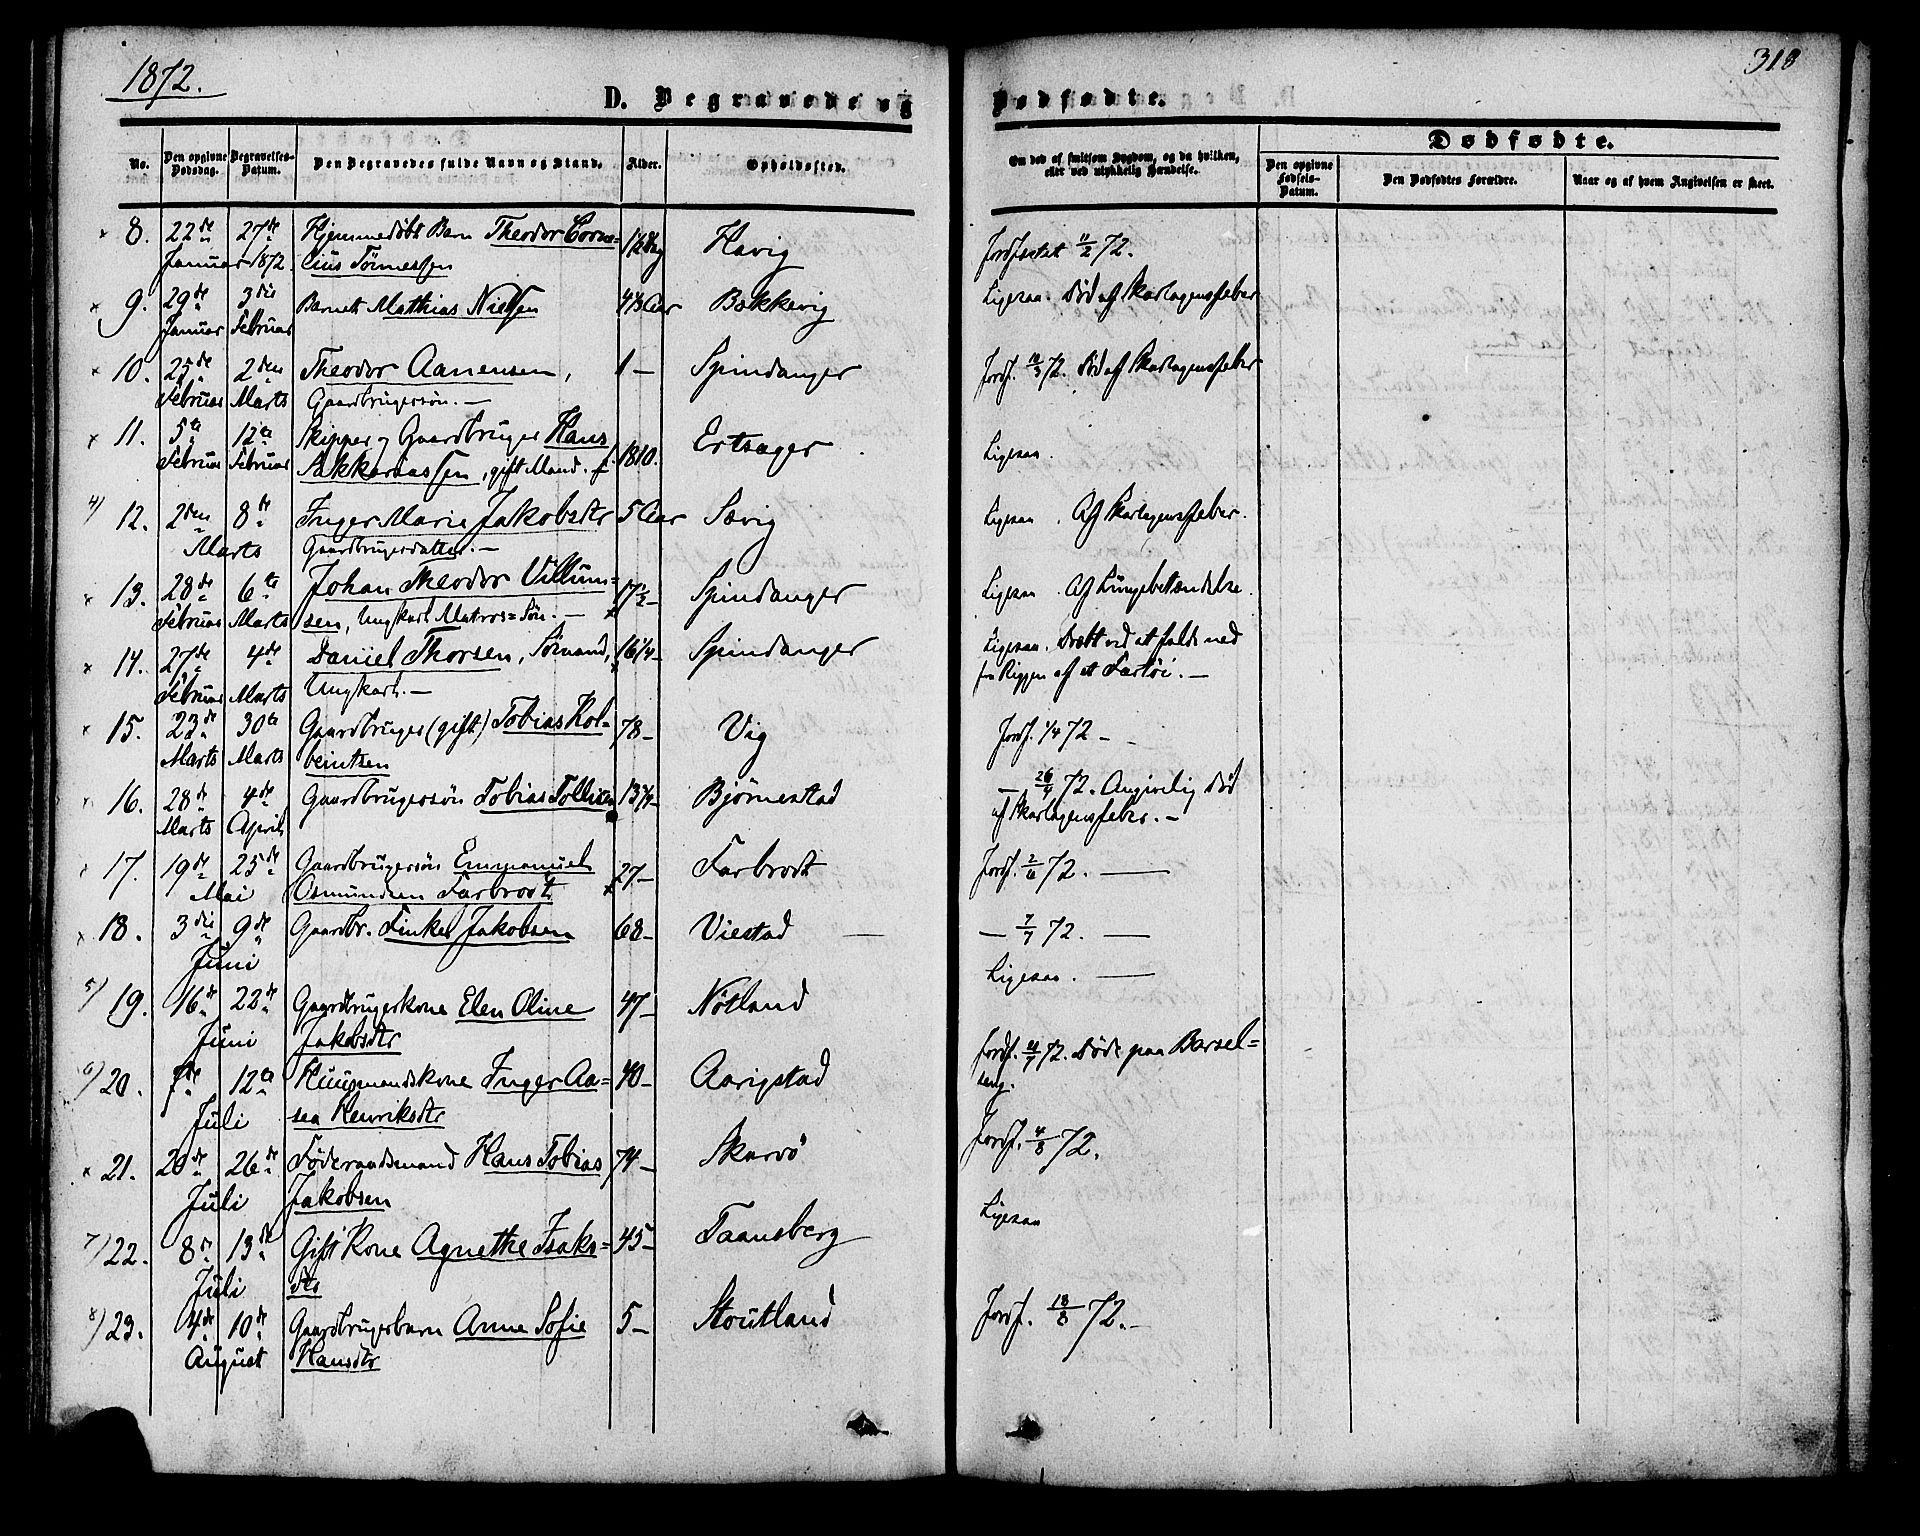 1872.
318
D. Begravede og Dødfødte.
Dødfødte.
No.
Den opgivne Dødsdag.
Begravelses-Datum.
Den Begravedes fulde Navn og Stand.
Alder.
Opholdssted.
Om død af smitsom Sygdom, og da hvilken, eller ved ulykkelig Hændelse.
Den opgivne Fødsels-Datum.
Den Dødfødtes Forældre.
Naar og af hvem Angivelsen er skeet.
× 8. 22de 27de Hjemmedøbt Barn Theodor Corne= 1/2 Dag Havig Jordfæstet 11/2 72.
Januar 1872. lius Tønnessen
× 9. 29de 3die Barnet Mathias Nielsen 4 1/3 Aar Bækkevig Ligesaa. Død af Skarlagensfeber
Januar Februar
× 10. 25de 2den Theodor Aanensen, 1 — Spindanger Jordf. 10/3 72. Død af Skarlagensfeber
Februar Marts Gaardbrugersøn. —
× 11. 5te 12te Skipper og Gaardbruger Hans 1810. Ertsager Ligesaa.
Februar Februar Sakkariassen, gift Mand.
4) 12. 2den 8de Inger Marie Jakobsdtr 5 Aar Sævig Ligesaa. Af Skarlagensfeber.
Marts Gaardbrugerdatter. —
× 13. 28de 6te Johan Theodor Villum= 17 1/2 — Spindanger Ligesaa. Af Lungebetændelse.
Februar Marts sen, Ungkarl Matros=Søn. —
× 14. 27de 4de Daniel Thorsen, Sømand, 16 1/4 — Spindanger Ligesaa. Dræbt ved at falde ned
Februar Marts Ungkarl. — fra Riggen af et Fartøi. —
× 15. 23de 30te Gaardbruger (gift) Tobias Kol= 78 — Vig Jordf. 1/4 72 —
Marts Marts beintsen
16. 28de 4de Gaardbrugersøn Tobias Tollisen Bjørnestad — 26/4 72. Angivelig Død
Marts April af Skarlagensfeber. —
× 17. 19de 25de Gaardbrugersøn Emmanuel 27 — Farbrodt Jordf. 2/6 72. —
Mai Osmundsen Farbrodt
× 18. 3die 9de Gaardbr. Finkel Jakobsen 68 — Viestad — — 7/7 72. —
Juni
5) 19. 16de 22de Gaardbrugerkone Elen Oline 47 — Nøtland Ligesaa. —
Juni Jakobsdtr
6) 20. 7de 12te Huusmandskone Inger Aa= 40 — Aarigstad Jordf. 21/7 72. Døde paa Barsel=
Juli sea Henriksdtr seng.
× 21. 20de 26de Føderaadsmand Hans Tobias 74 — Skarvø Jordf. 4/8 72.
Juli Jakobsen
7) 22. 8de 13de Gift Kone Agnethe Isaks= 45 — Taansberg Ligesaa
Juli dtr
8) 23. 4de 10de Gaardbrugerbarn Anne Sofie 5 — Stoutland Jordf. 18/8 72. —
August Hansdtr